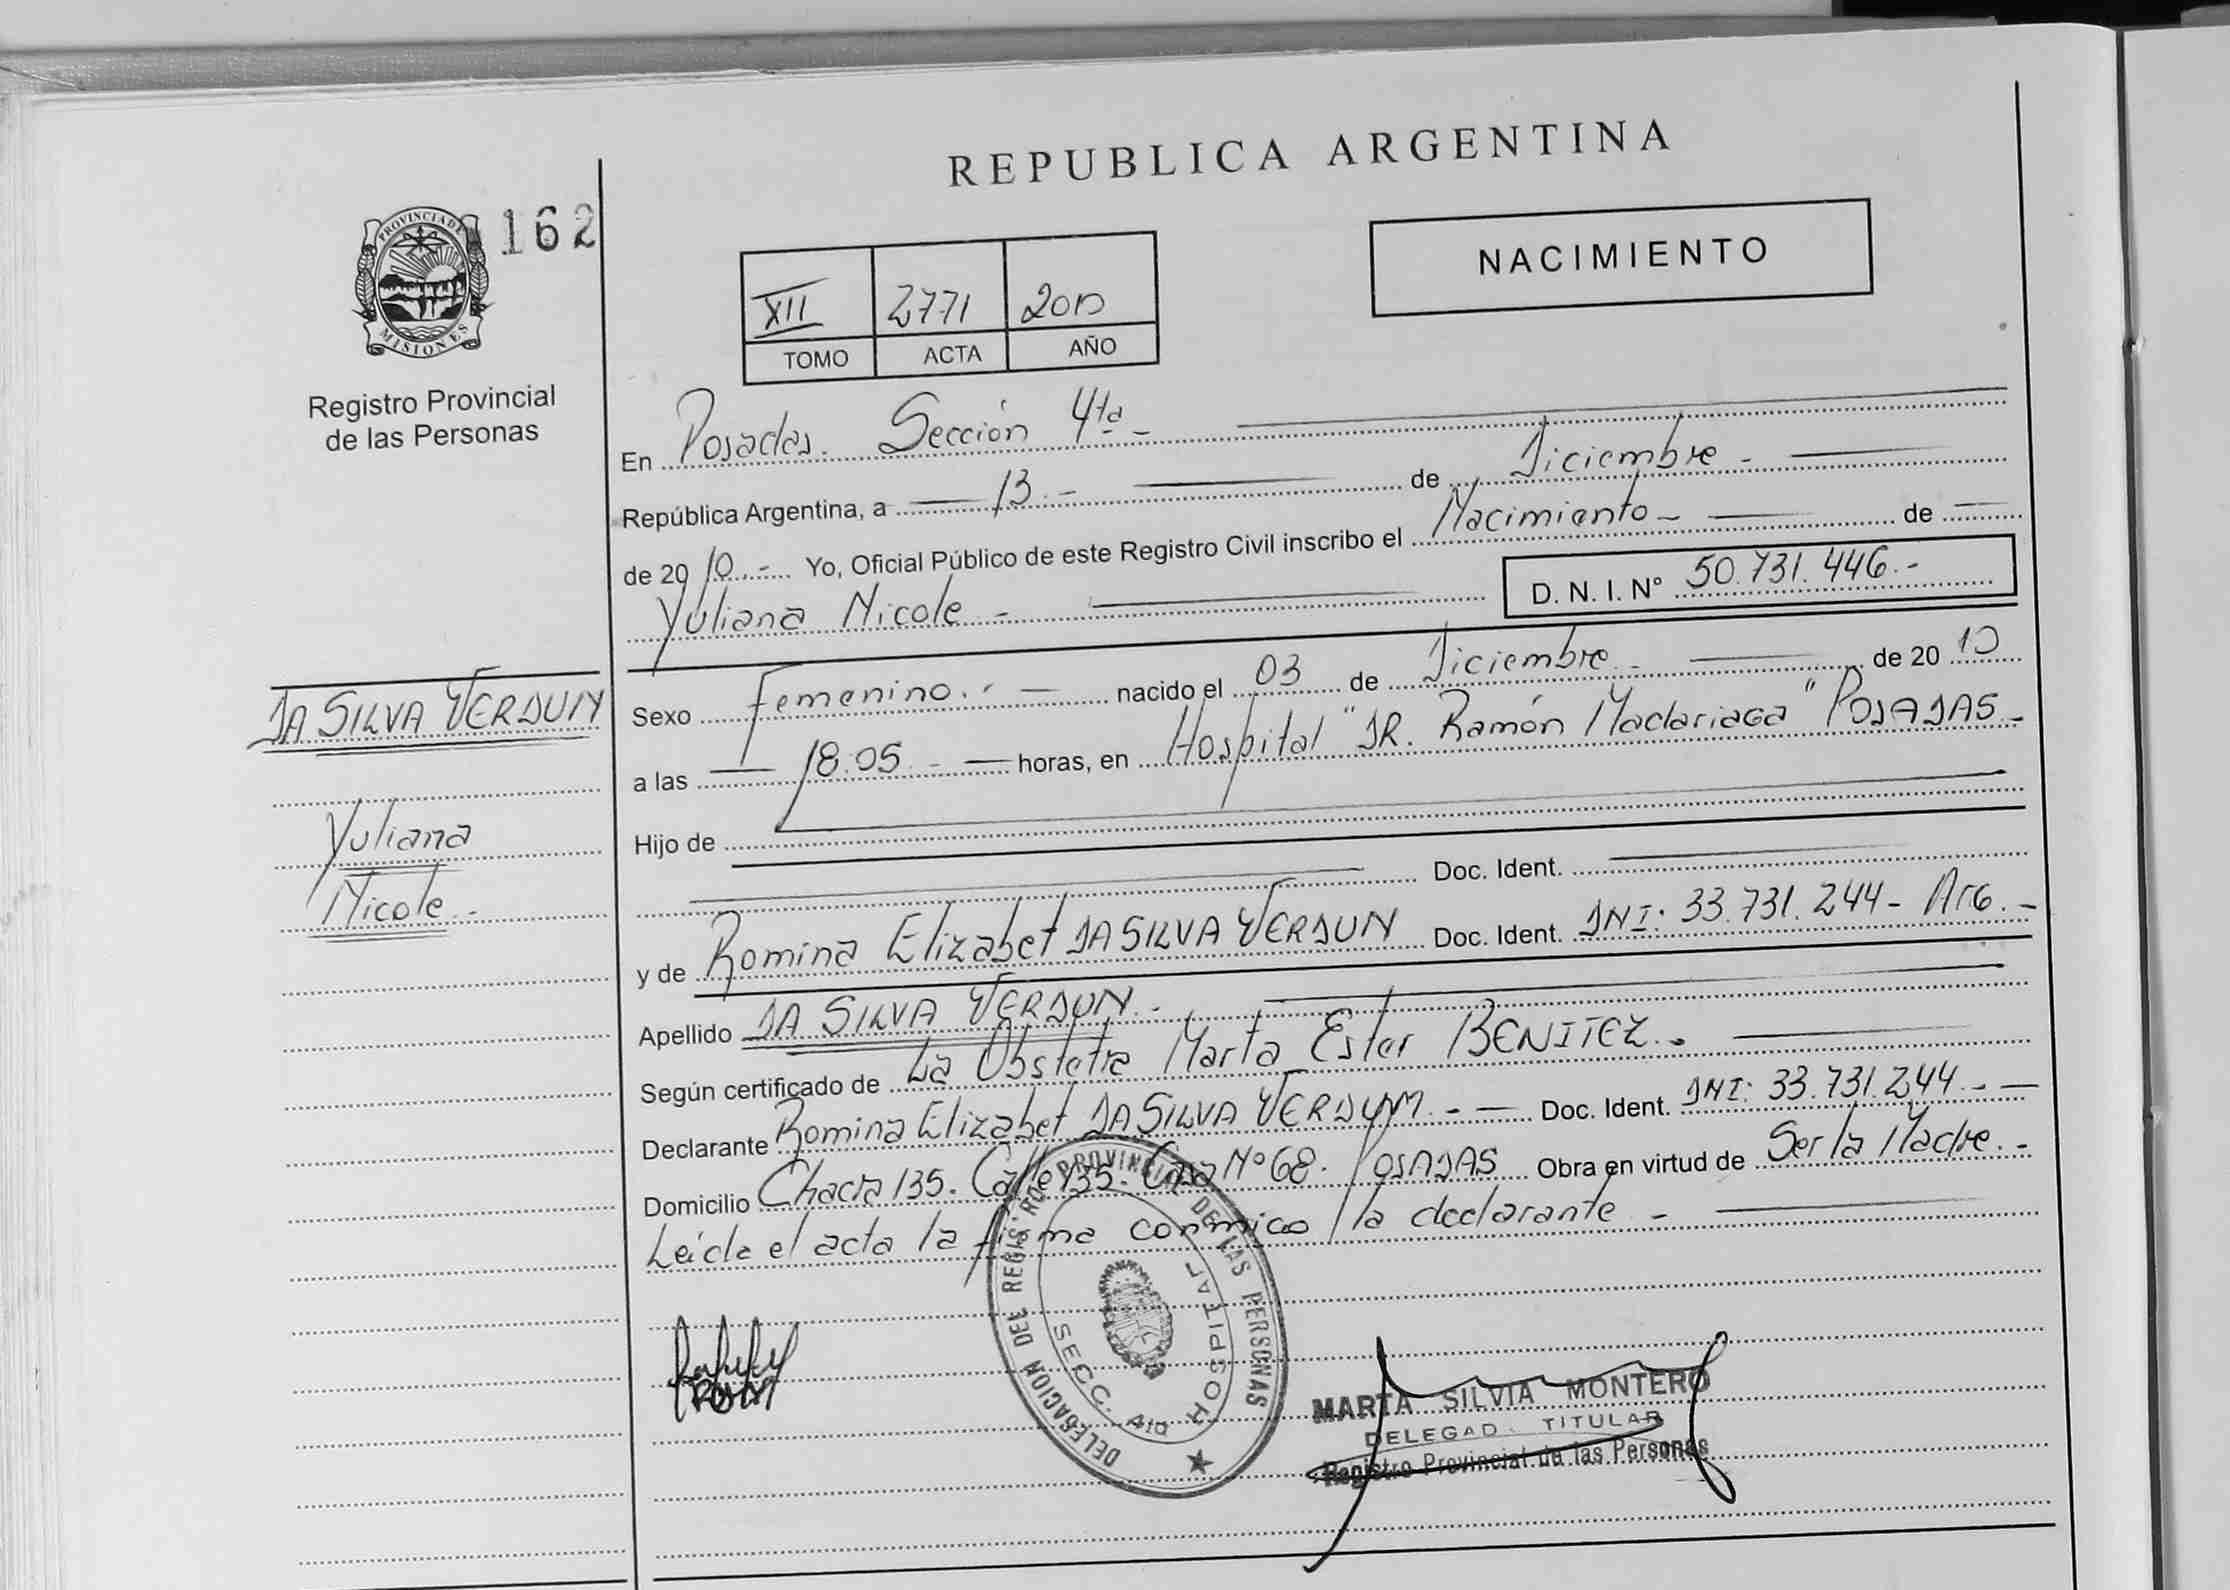 REPUBLICA ARGENTINA
PROVINCIA DE
MISIONES
162
Registro Provincial
de las Personas
NACIMIENTO
XII 2771 2010
TOMO ACTA AÑO
En Posadas. Sección 4ta -
República Argentina, a 13.- de Diciembre -
de 2010.- Yo, Oficial Público de este Registro Civil inscribo el Nacimiento - de
Yuliana Nicole.- D. N. I. Nº 50.731.446.-
DA SILVA VERDUN
Yuliana
Nicole.-
Sexo Femenino.- nacido el 03 de Diciembre.- de 2010
a las 18:05.- horas, en Hospital "DR. Ramón Madariaga" POSADAS-
Hijo de
Doc. Ident.
y de Romina Elizabet DA SILVA VERDUN Doc. Ident. DNI: 33.731.244- Arg.-
Apellido DA SILVA VERDUN.-
Según certificado de La Obstetra Marta Ester BENITEZ.-
Declarante Romina Elizabet DA SILVA VERDUN.- Doc. Ident. DNI: 33.731.244.-
Domicilio Chacra 135. Calle 135. Casa Nº 68. POSADAS Obra en virtud de Ser la Madre.-
Leída el acta la firma conmigo la declarante -
DELEGACION DEL REGIS. RO PROVINCIAL DE LAS PERSONAS
SECC. 4ta HOSPITAL
MARTA SILVIA MONTERO
DELEGAD. TITULAR
Registro Provincial de las Personas